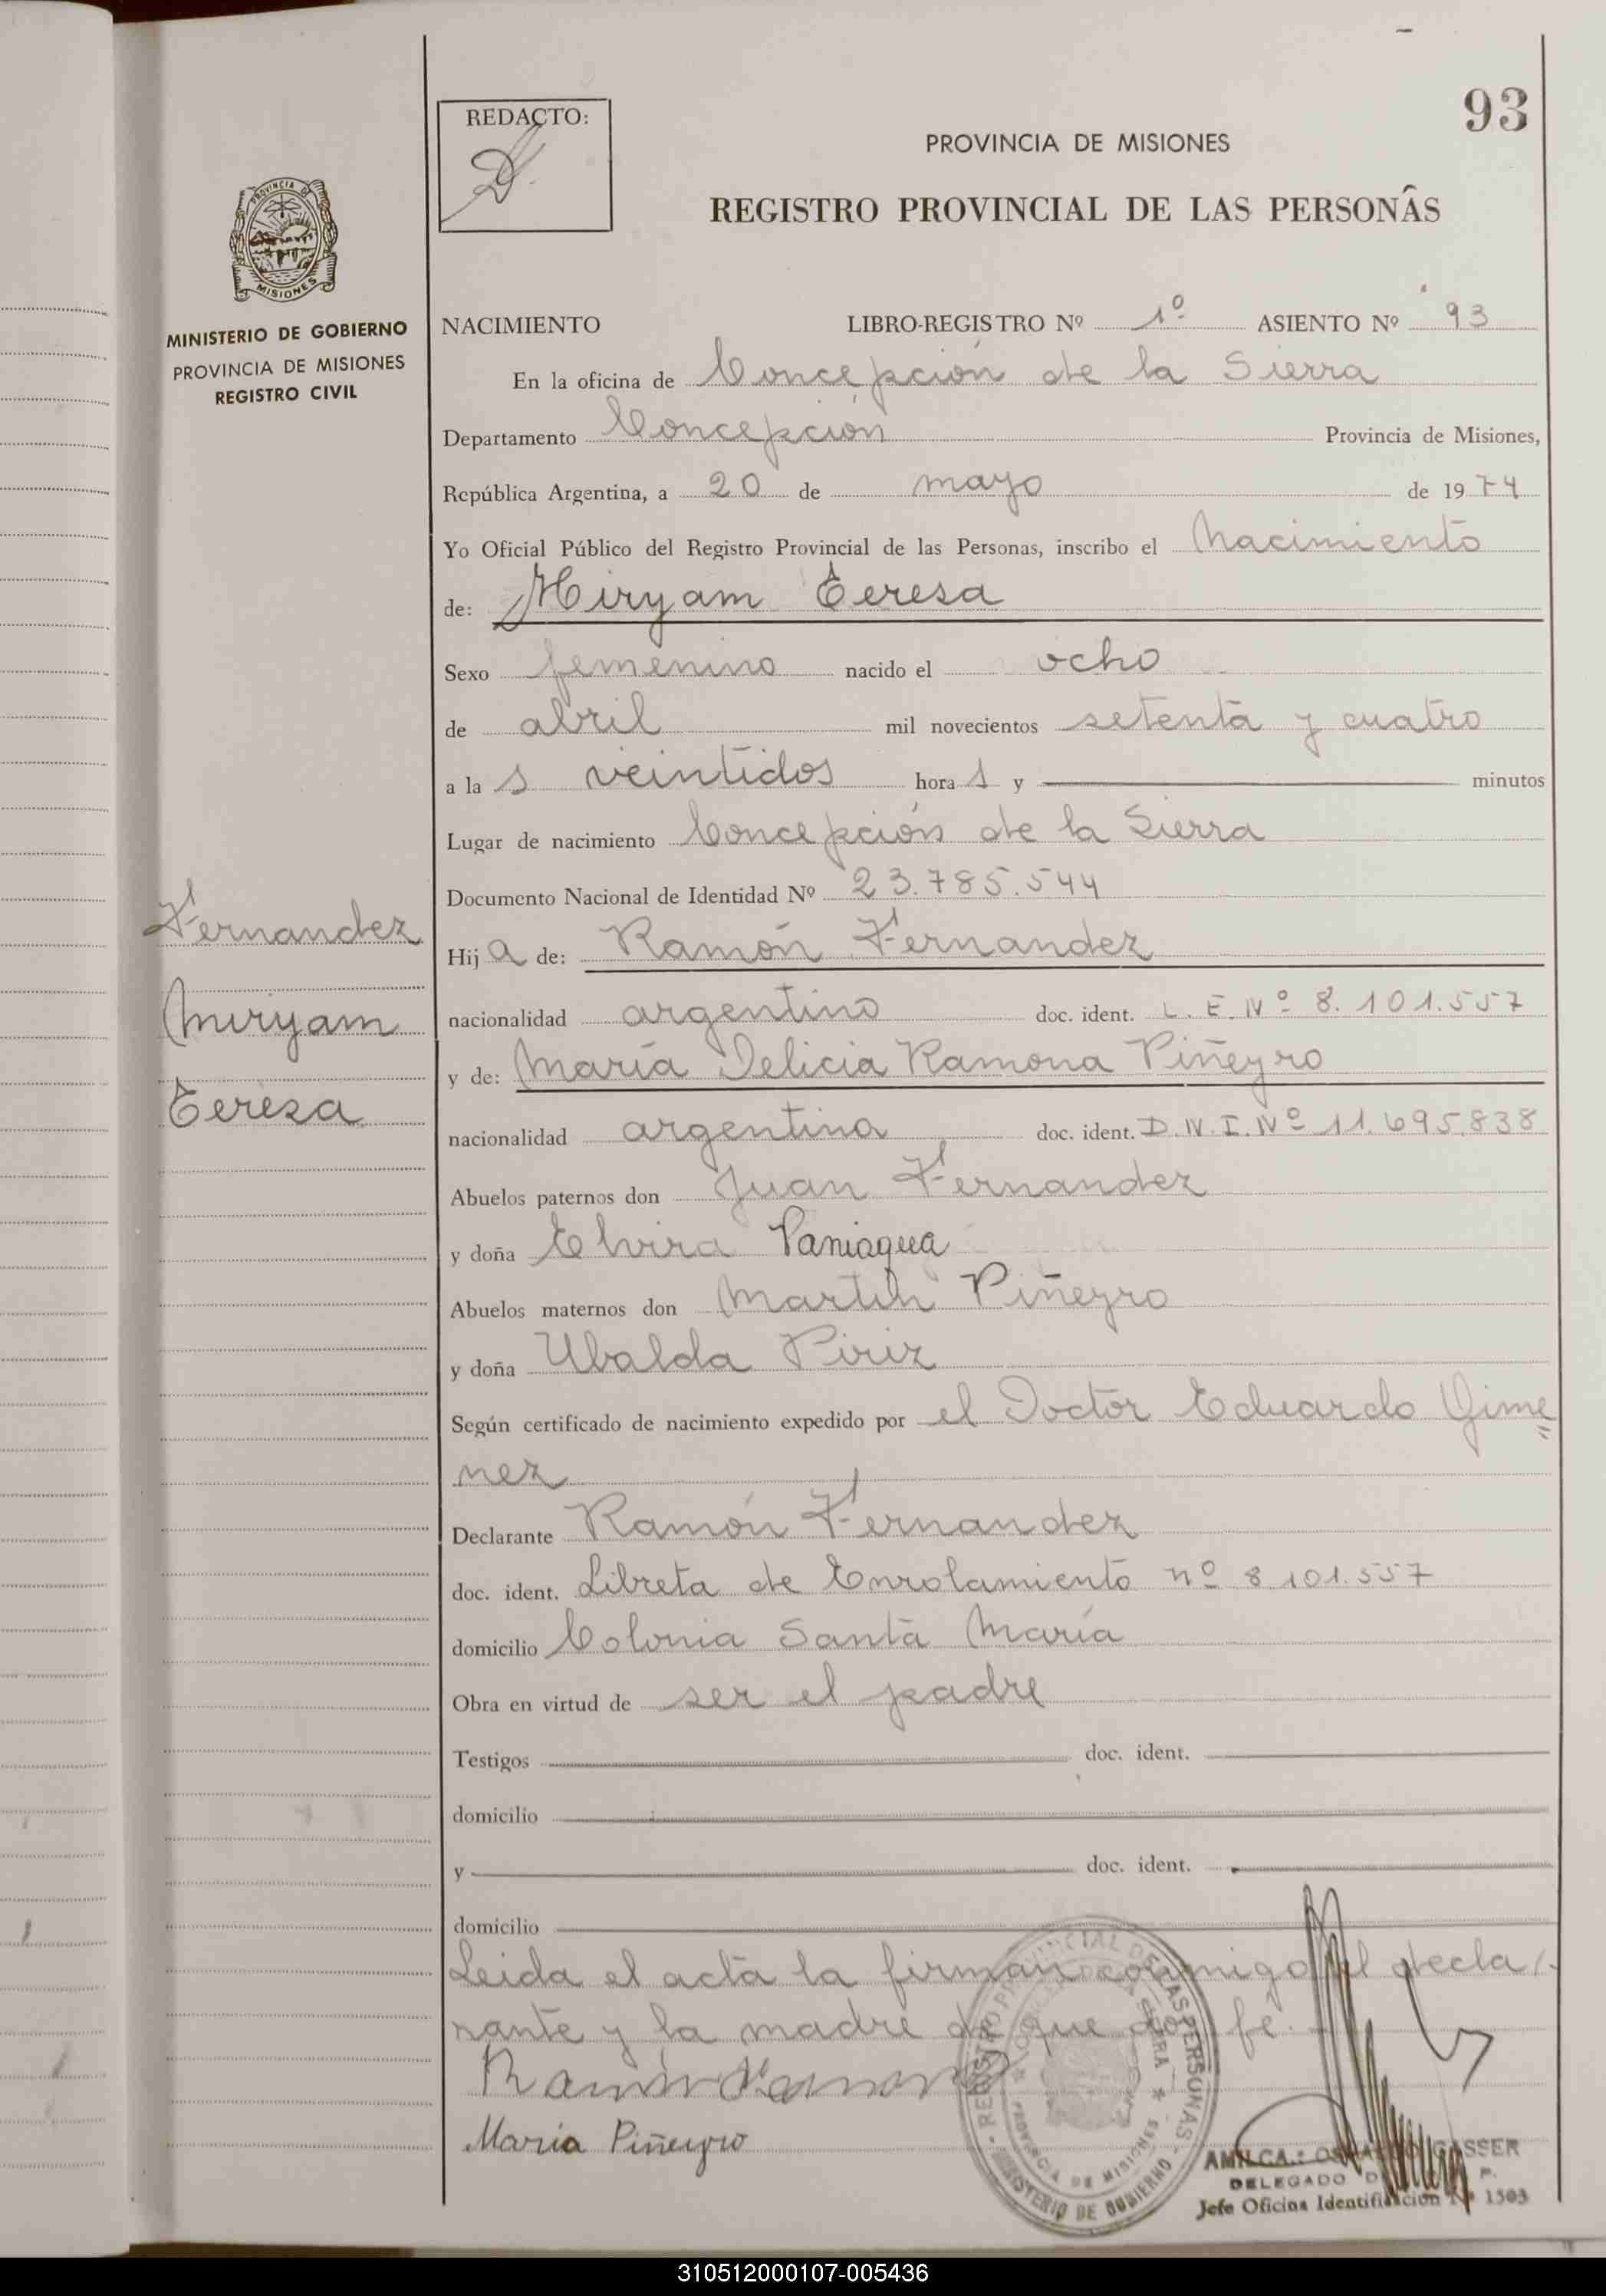 93
REDACTO:
PROVINCIA DE MISIONES
REGISTRO PROVINCIAL DE LAS PERSONAS
PROVINCIA DE
MISIONES
MINISTERIO DE GOBIERNO
PROVINCIA DE MISIONES
REGISTRO CIVIL
NACIMIENTO LIBRO-REGISTRO Nº 1º ASIENTO Nº 93
En la oficina de Concepción de la Sierra
Departamento Concepción Provincia de Misiones,
República Argentina, a 20 de mayo de 1974
Yo Oficial Público del Registro Provincial de las Personas, inscribo el Nacimiento
de: Miryam Teresa
Sexo femenino nacido el ocho
de abril mil novecientos setenta y cuatro
a la s veintidos hora s y minutos
Lugar de nacimiento Concepción de la Sierra
Documento Nacional de Identidad Nº 23.785.544
Fernandez
Miryam
Teresa
Hij a de: Ramón Fernandez
nacionalidad argentino doc. ident. L. E. Nº 8.101.557
y de: María Delicia Ramona Piñeyro
nacionalidad argentina doc. ident. D.N.I. Nº 11.695.838
Abuelos paternos don Juan Fernandez
y doña Elvira Paniagua
Abuelos maternos don Martín Piñeyro
y doña Ubalda Piriz
Según certificado de nacimiento expedido por el Doctor Eduardo Gime
nez
Declarante Ramón Fernandez
doc. ident. Libreta de Enrolamiento nº 8.101.557
domicilio Colonia Santa María
Obra en virtud de ser el padre
Testigos doc. ident.
domicilio
y doc. ident.
domicilio
Leida el acta la firman conmigo el decla
rante y la madre de que doy fe.
Ramón Fernandez
María Piñeyro
REGISTRO PROVINCIAL DE LAS PERSONAS
MINISTERIO DE GOBIERNO
PROVINCIA DE MISIONES
GASSER
DELEGADO
Jefe Oficina Identificación Nº 1503
310512000107-005436